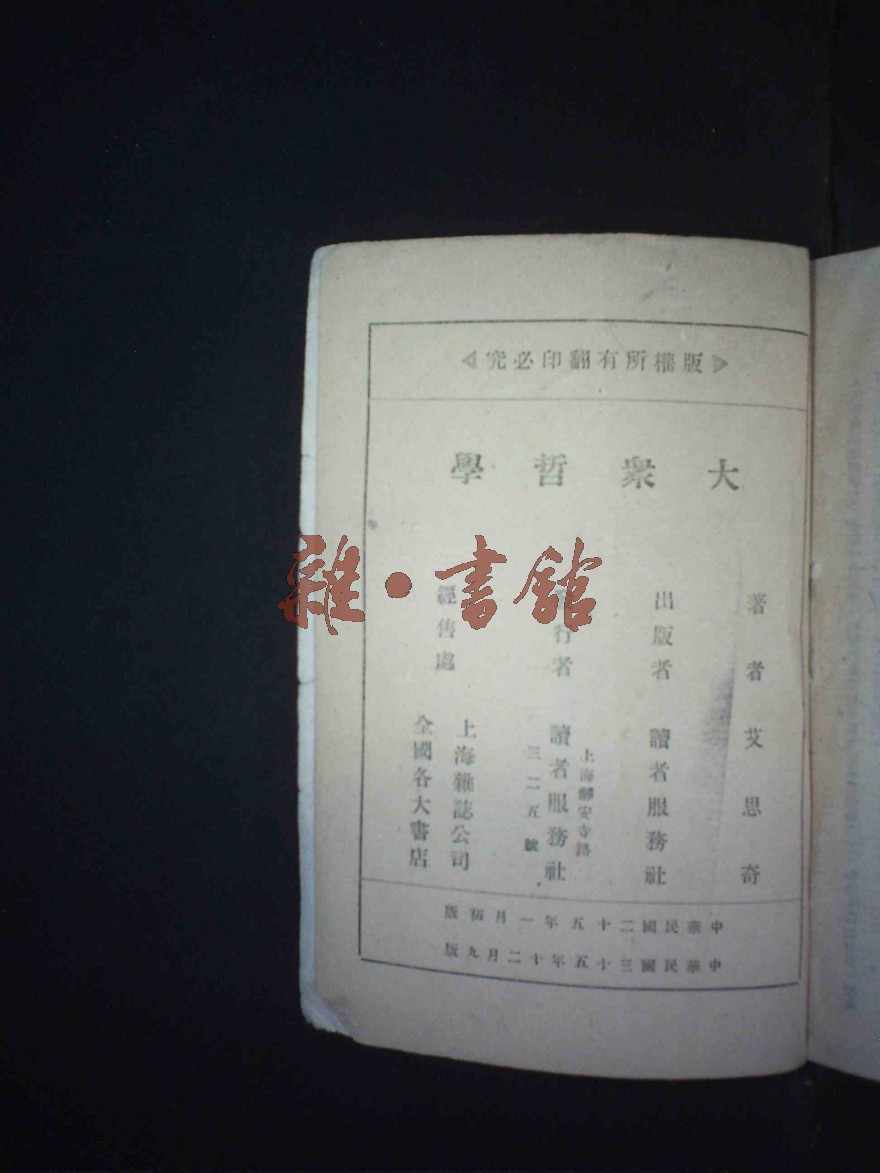 版權所有翻印必究
大眾哲學
著者 艾思奇
出版者 讀者服務社
發行者 讀者服務社
上海靜安寺路
一三二五號
經售處
上海雜誌公司
全國各大書店
中華民國二十五年一月初版
中華民國三十五年十二月九版
雜·書館